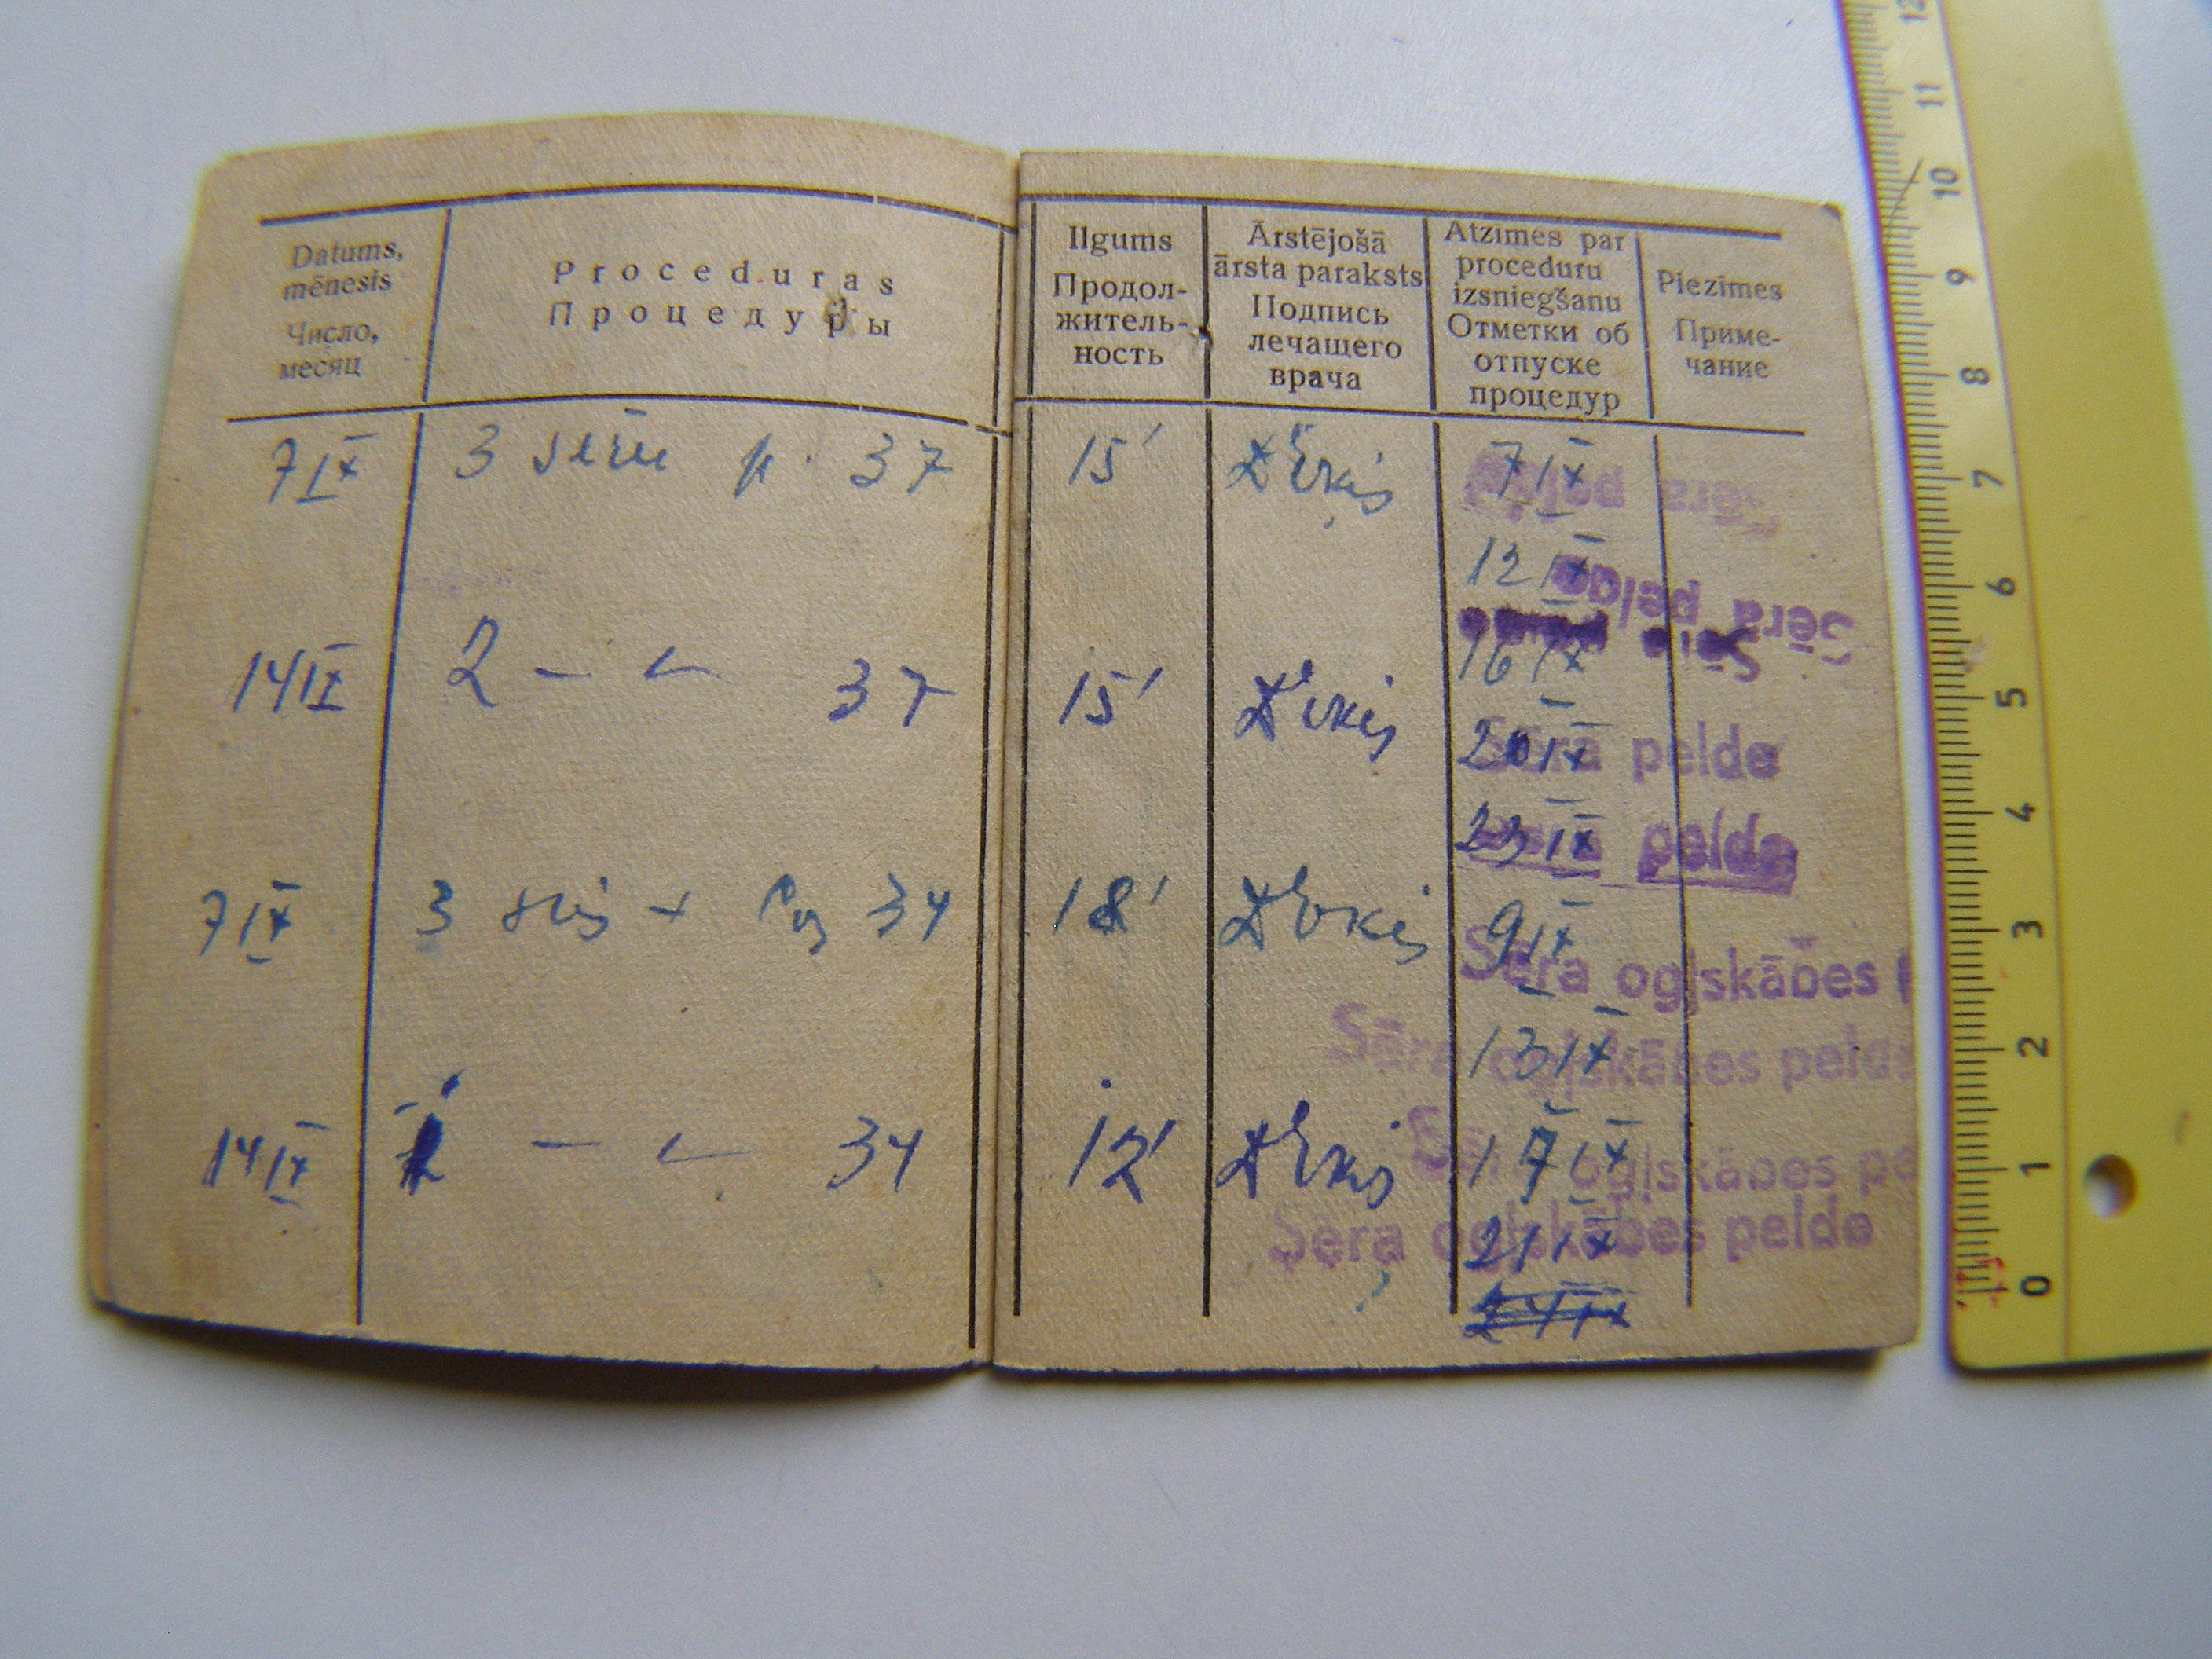 Datums, mēnesis
Число, месяц
Proceduras
Процедуры
Ilgums
Продол-
житель-
ность
Ārstējošā
ārsta paraksts
Подпись
лечащего
врача
Atzīmes par
proceduru
izsniegšanu
Отметки об
отпуске
процедур
Piezīmes
Приме-
чание
7 IX 3 sēru p. 37 15'
7 IX
Sēra pelde
12 IX
Sēra pelde
14 IX 2 — „ — 37 15'
16 IX
20 IX
Sēra pelde
23 IX
pelde
7 IX 3 34 18'
9 IX
Sēra ogļskābes
13 IX
Sēra ogļskābes pelde
14 IX — „ — 34 12'
17 IX
ogļskābes pe
21 IX
Sēra ogļskābes pelde
24 IX
12
11
10
9
8
7
6
5
4
3
2
1
0